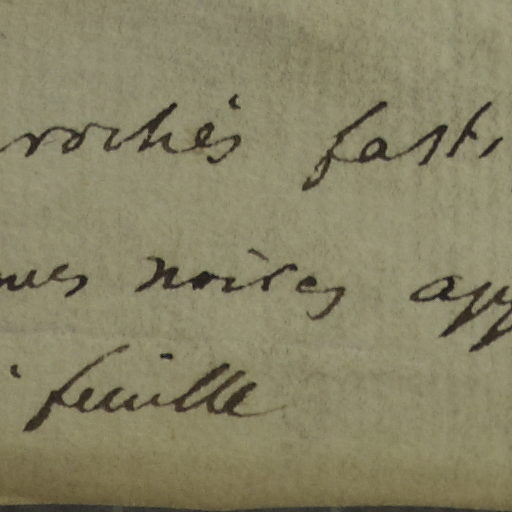 rochés fasti
nues noires app
feuille